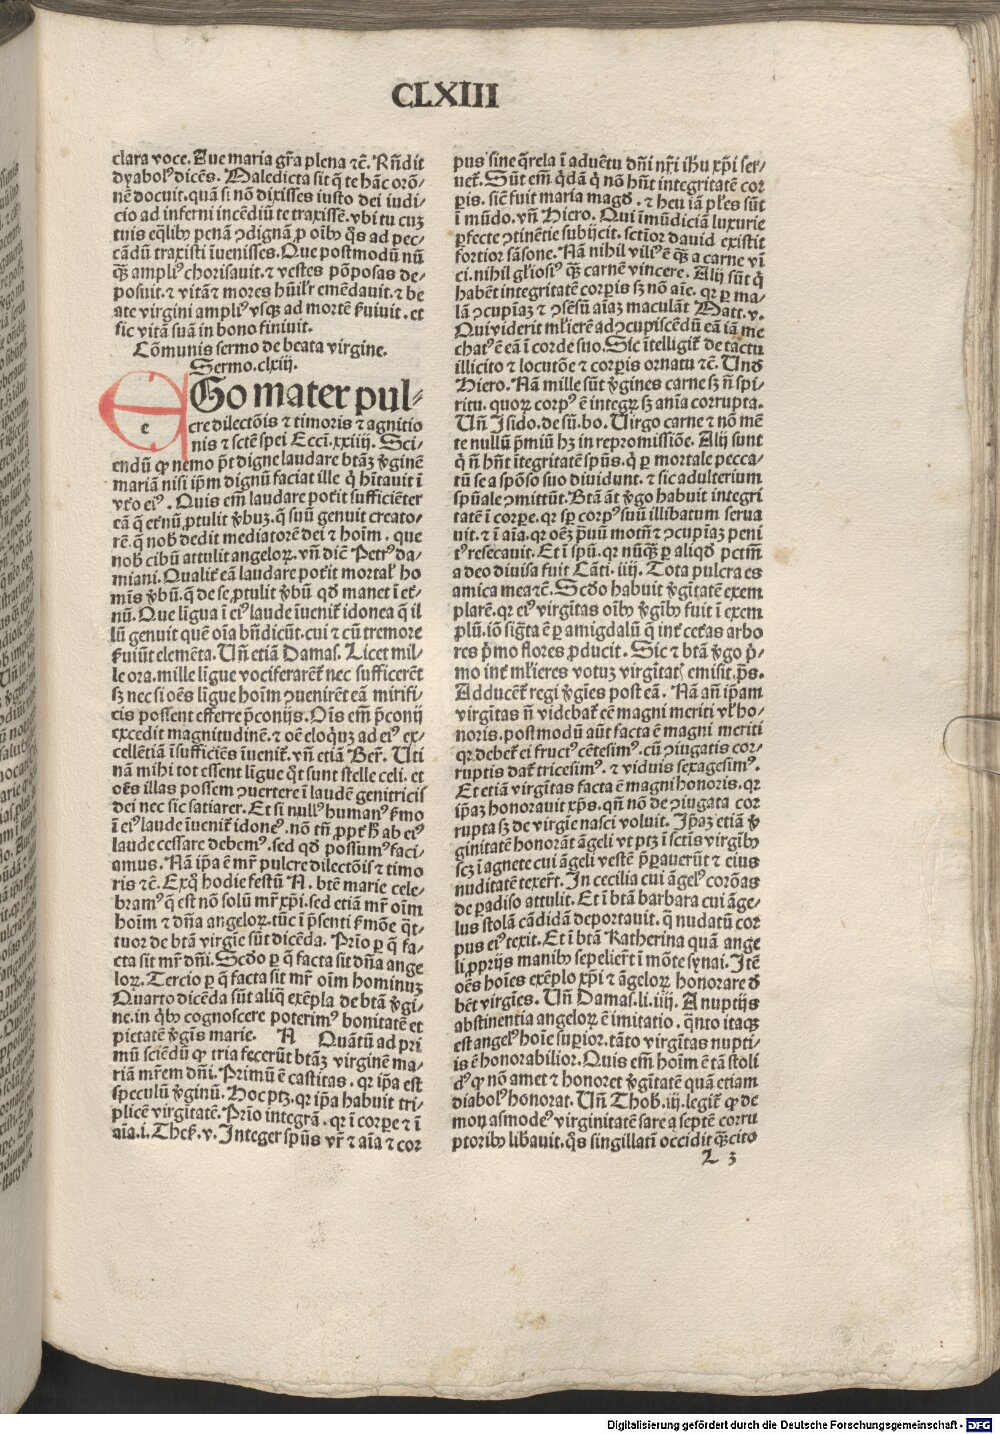 CLXIII
clara voce. Aue maria gr̃a plena ⁊c̃. Rñdit
dyabolꝰ dicẽs. Maledicta sit q̃ te hãc orõ⸗
nẽ docuit. quã si nõ dixisses iusto dei iudi⸗
cio ad inferni incẽdiũ te traxissẽ. vbi tu cuꝫ
tuis eq̃libꝫ penã ꝯdignã ꝓ oĩbꝫ q̃s ad pec⸗
cãdũ traxisti iuuenisses. Que postmodũ nũ
q̃ꝫ ampliꝰ chorisauit. ⁊ vestes põposas de⸗
posuit. ⁊ vitã ⁊ mores hũilr̃ emẽdauit. ⁊ be
ate virgini ampliꝰ vsqꝫ ad mortẽ ẜuiuit. et
sic vitã suã in bono finiuit.
Cõmunis sermo de beata virgine.
Sermo. clxiij.
e
Go mater pul⸗
cre dilectõis ⁊ timoris ⁊ agnitio
nis ⁊ sctẽ spei Ecci. xxiiij. Sci⸗
endũ ꝙ nemo p̃t digne laudare btãꝫ ꝟginẽ
mariã nisi ip̃m dignũ faciat ille q̇ hĩtauit ĩ
vt̃o eiꝰ. Quis em̃ laudare poťit sufficiẽter
eã q̃ eťnũ ꝓtulit ꝟbuꝫ. q̃ suũ genuit creato⸗
rẽ. q̃ nobꝭ dedit mediatorẽ dei ⁊ hoĩm. que
nobꝭ cibũ attulit angeloꝝ. vñ dic̃ Petrꝰ da⸗
miani. Qualiť eã laudare poťit mortalꝭ ho
mĩs ꝟbũ. q̃ de se ꝓtulit ꝟbũ qď manet ĩ eť⸗
nũ. Que lĩgua ĩ eiꝰ laude ĩueniť idonea q̃ il
lũ genuit quẽ oĩa bñdicũt. cui ⁊ cũ tremore
ẜuiũt elemẽta. Uñ etiã Damas. Licet mil⸗
le ora. mille lĩgue vociferarẽť nec sufficerẽt
sꝫ nec si oẽs lĩgue hoĩm ꝯuenirẽt eã mirifi⸗
cis possent efferre p̃conijs. Oĩs em̃ p̃conij
excedit magnitudinẽ. ⁊ oẽ eloq̃uꝫ ad eiꝰ ex⸗
cellẽtiã ĩsufficiẽs ĩueniť. vñ etiã Ber̃. Uti
nã mihi tot essent lĩgue q̃t sunt stelle celi. et
oẽs illas possem ꝯuertere ĩ laudẽ genitricis
dei nec sic satiarer. Et si nullꝰ humanꝰ ẜmo
ĩ eiꝰ laude ĩueniť idoneꝰ. nõ tñ ꝓpť ħ ab eiꝰ
laude cessare debemꝰ. sed qď possumꝰ faci⸗
amus. Nã ip̃a ẽ mr̃ pulcre dilectõis ⁊ timo
ris ⁊c̃. Exq̃ hodie festũ N. btẽ marie cele⸗
bramꝰ q̃ est nõ solũ mr̃ xp̃i. sed etiã mr̃ oĩm
hoĩm ⁊ dña angeloꝝ. tũc ĩ p̃senti ẜmõe q̃t⸗
tuor de btã virgĩe sũt dicẽda. Prĩo ꝑ q̃ fa⸗
cta sit mr̃ dñi. Scďo ꝑ q̃ facta sit dña ange
loꝝ. Tercio ꝑ q̃ facta sit mr̃ oĩm hominuꝫ
Quarto dicẽda sũt aliq̃ exẽpla de btã ꝟgi⸗
ne. in q̇bꝫ cognoscere poterimꝰ bonitatẽ et
pietatẽ ꝟgĩs marie. A Quãtũ ad pri
mũ sciẽdũ ꝙ tria fecerũt btãꝫ virginẽ ma⸗
riã mr̃em dñi. Primũ ẽ castitas. qr ip̃a est
speculũ ꝟginũ. Hoc ptꝫ. qr ip̃a habuit tri⸗
plicẽ virgĩtatẽ. Prĩo integrã. qr ĩ corꝑe ⁊ ĩ
aĩa. i. Theẜ. v. Integer spũs vr̃ ⁊ aĩa ⁊ cor
pus sine q̃rela ĩ aduẽtu dñi nr̃i ihu xp̃i ser⸗
ueť. Sũt em̃ q̃dã q̇ nõ hñt integritatẽ cor
ꝑis. sic̃ fuit maria magď. ⁊ heu iã pl̃es sũt
ĩ mũdo. vñ Hiero. Qui ĩmũdiciã luxurie
ꝑfecte ꝯtinẽtie subijcit. sctĩor dauid existit
fortior sãsone. Nã nihil viliꝰ ẽ q̃ꝫ a carne vĩ
ci. nihil gl̃iosiꝰ q̃ꝫ carnẽ vincere. Alij sũt q̇
habẽt integritatẽ corꝑis sꝫ nõ aĩe. qr ꝑ ma⸗
lã ꝯcupĩaꝫ ⁊ ꝯsẽsũ aĩaꝫ maculãt Matt. v.
Qui viderit ml̃ierẽ ad ꝯcupiscẽdũ eã iã me
chatꝰ ẽ eã ĩ corde suo. Sic ĩtelligiť de tactu
illicito ⁊ locutõe ⁊ corꝑis ornatu ⁊c̃. Unď
Hiero. Nã mille sũt ꝟgines carne sꝫ ñ spi⸗
ritu. quoꝝ corpꝰ ẽ integꝝ sꝫ anĩa corrupta.
Uñ Isido. de sũ. bo. Virgo carne ⁊ nõ mẽ
te nullũ p̃miũ hꝫ in repromissiõe. Alij sunt
q̇ ñ hñt ĩtegritatẽ spũs. q̇ ꝑ mortale pecca⸗
tũ se a spõso suo diuidunt. ⁊ sic adulterium
spũale ꝯmittũt. Btã aũt ꝟgo habuit integri
tatẽ ĩ corꝑe. qr sꝑ corpꝰ suũ illibatum serua
uit. ⁊ ĩ aĩa. qr oẽꝫ p̃uũ motũ ⁊ ꝯcupĩaꝫ peni
tꝰ resecauit. Et ĩ spũ. qr nũq̃ꝫ ꝑ aliqď pctm̃
a deo diuisa fuit Cãti. iiij. Tota pulcra es
amica mea ⁊c̃. Scďo habuit ꝟgĩtatẽ exem
plarẽ. qr eiꝰ virgĩtas oĩbꝫ ꝟgĩbꝫ fuit ĩ exem
plũ. iõ sig̃ta ẽ ꝑ amigdalũ q̃ inť ceťas arbo
res p̃mo flores ꝓducit. Sic ⁊ btã ꝟgo p̃⸗
mo inť ml̃ieres votuꝫ virgĩtatꝭ emisit. p̃s.
Adducẽť regi ꝟgĩes post eã. Nã añ ip̃am
virgĩtas ñ videbať eẽ magni meriti vl̃ ho⸗
noris. postmodũ aũt facta ẽ magni meriti
qr debeť ei fructꝰ cẽtesimꝰ. cũ ꝯiugatis cor⸗
ruptis dať tricesimꝰ. ⁊ viduis sexagesimꝰ.
Et etiã virgĩtas facta ẽ magni honoris. qr
ip̃aꝫ honorauit xp̃s. qñ nõ de ꝯiugata cor
rupta sꝫ de virgĩe nasci voluit. Ip̃aꝫ etiã ꝟ
ginitatẽ honorãt ãgeli vt ptꝫ ĩ sctĩs virgĩbꝫ
scꝫ ĩ agnete cui ãgeli vestẽ p̃parauerũt ⁊ eius
nuditatẽ texer̃t. In cecilia cui ãgelꝰ corõas
de ꝑadiso attulit. Et ĩ btã barbara cui ãge⸗
lus stolã cãdidã deportauit. q̃ nudatũ cor
pus eiꝰ texit. Et ĩ btã Katherina quã ange
li ꝓprijs manibꝫ sepelier̃t ĩ mõte synai. Itẽ
oẽs hoĩes exẽplo xp̃i ⁊ ãgeloꝝ honorare ď
bẽt virgĩes. Uñ Damas. li. iiij. A nuptijs
abstinentia angeloꝝ ẽ imitatio. q̃nto itaqꝫ
est angelꝰ hoĩe suꝑior. tãto virgĩtas nupti⸗
is ẽ honorabilior. Quis em̃ hoĩm ẽ tã stoli
dꝰ ꝙ nõ amet ⁊ honoret ꝟgĩtatẽ quã etiam
diabolꝰ honorat. Uñ Thob. iij. legiť ꝙ de
mon asmodeꝰ virginitatẽ sare a septẽ corru
ptoribꝫ libauit. q̃s singillatĩ occidit q̃ꝫcito
L 3
Digitalisierung gefördert durch die Deutsche Forschungsgemeinschaft - DFG